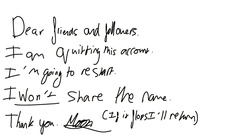 Dear friends and followers.
I am quitting this account.
I'm going to restart.
I won't share the name.
Thank you. Moon (If it flops I'll return)